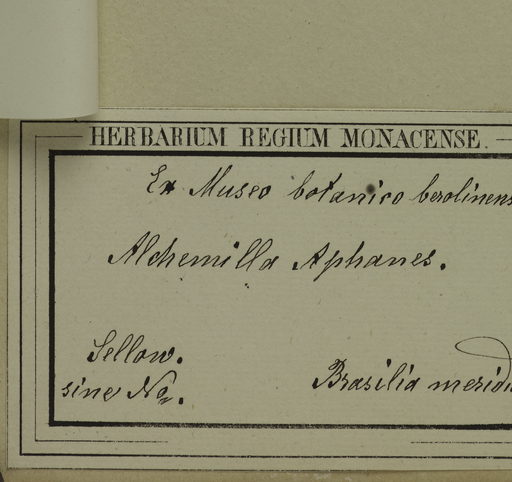 HERBARIUM REGIUM MONACENSE.
Ex Museo botanico berolinens
Alchemilla Aphanes.
Sellow.
sine No.
Brasilia meridi